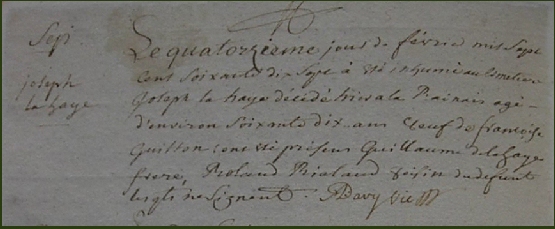 Sep.
joseph
la haye
Le quatorzieme jour de février mil sept
cent soixante dix sept à été inhumé au cimetiere
joseph la haye décédé hier a la agé
d'environ soixante dix ans veuf de francoise
Guitton ont été présens Guillaume de la haye
frere, Roland Rialand voisin du défunt
lesqls ne signent. Davy